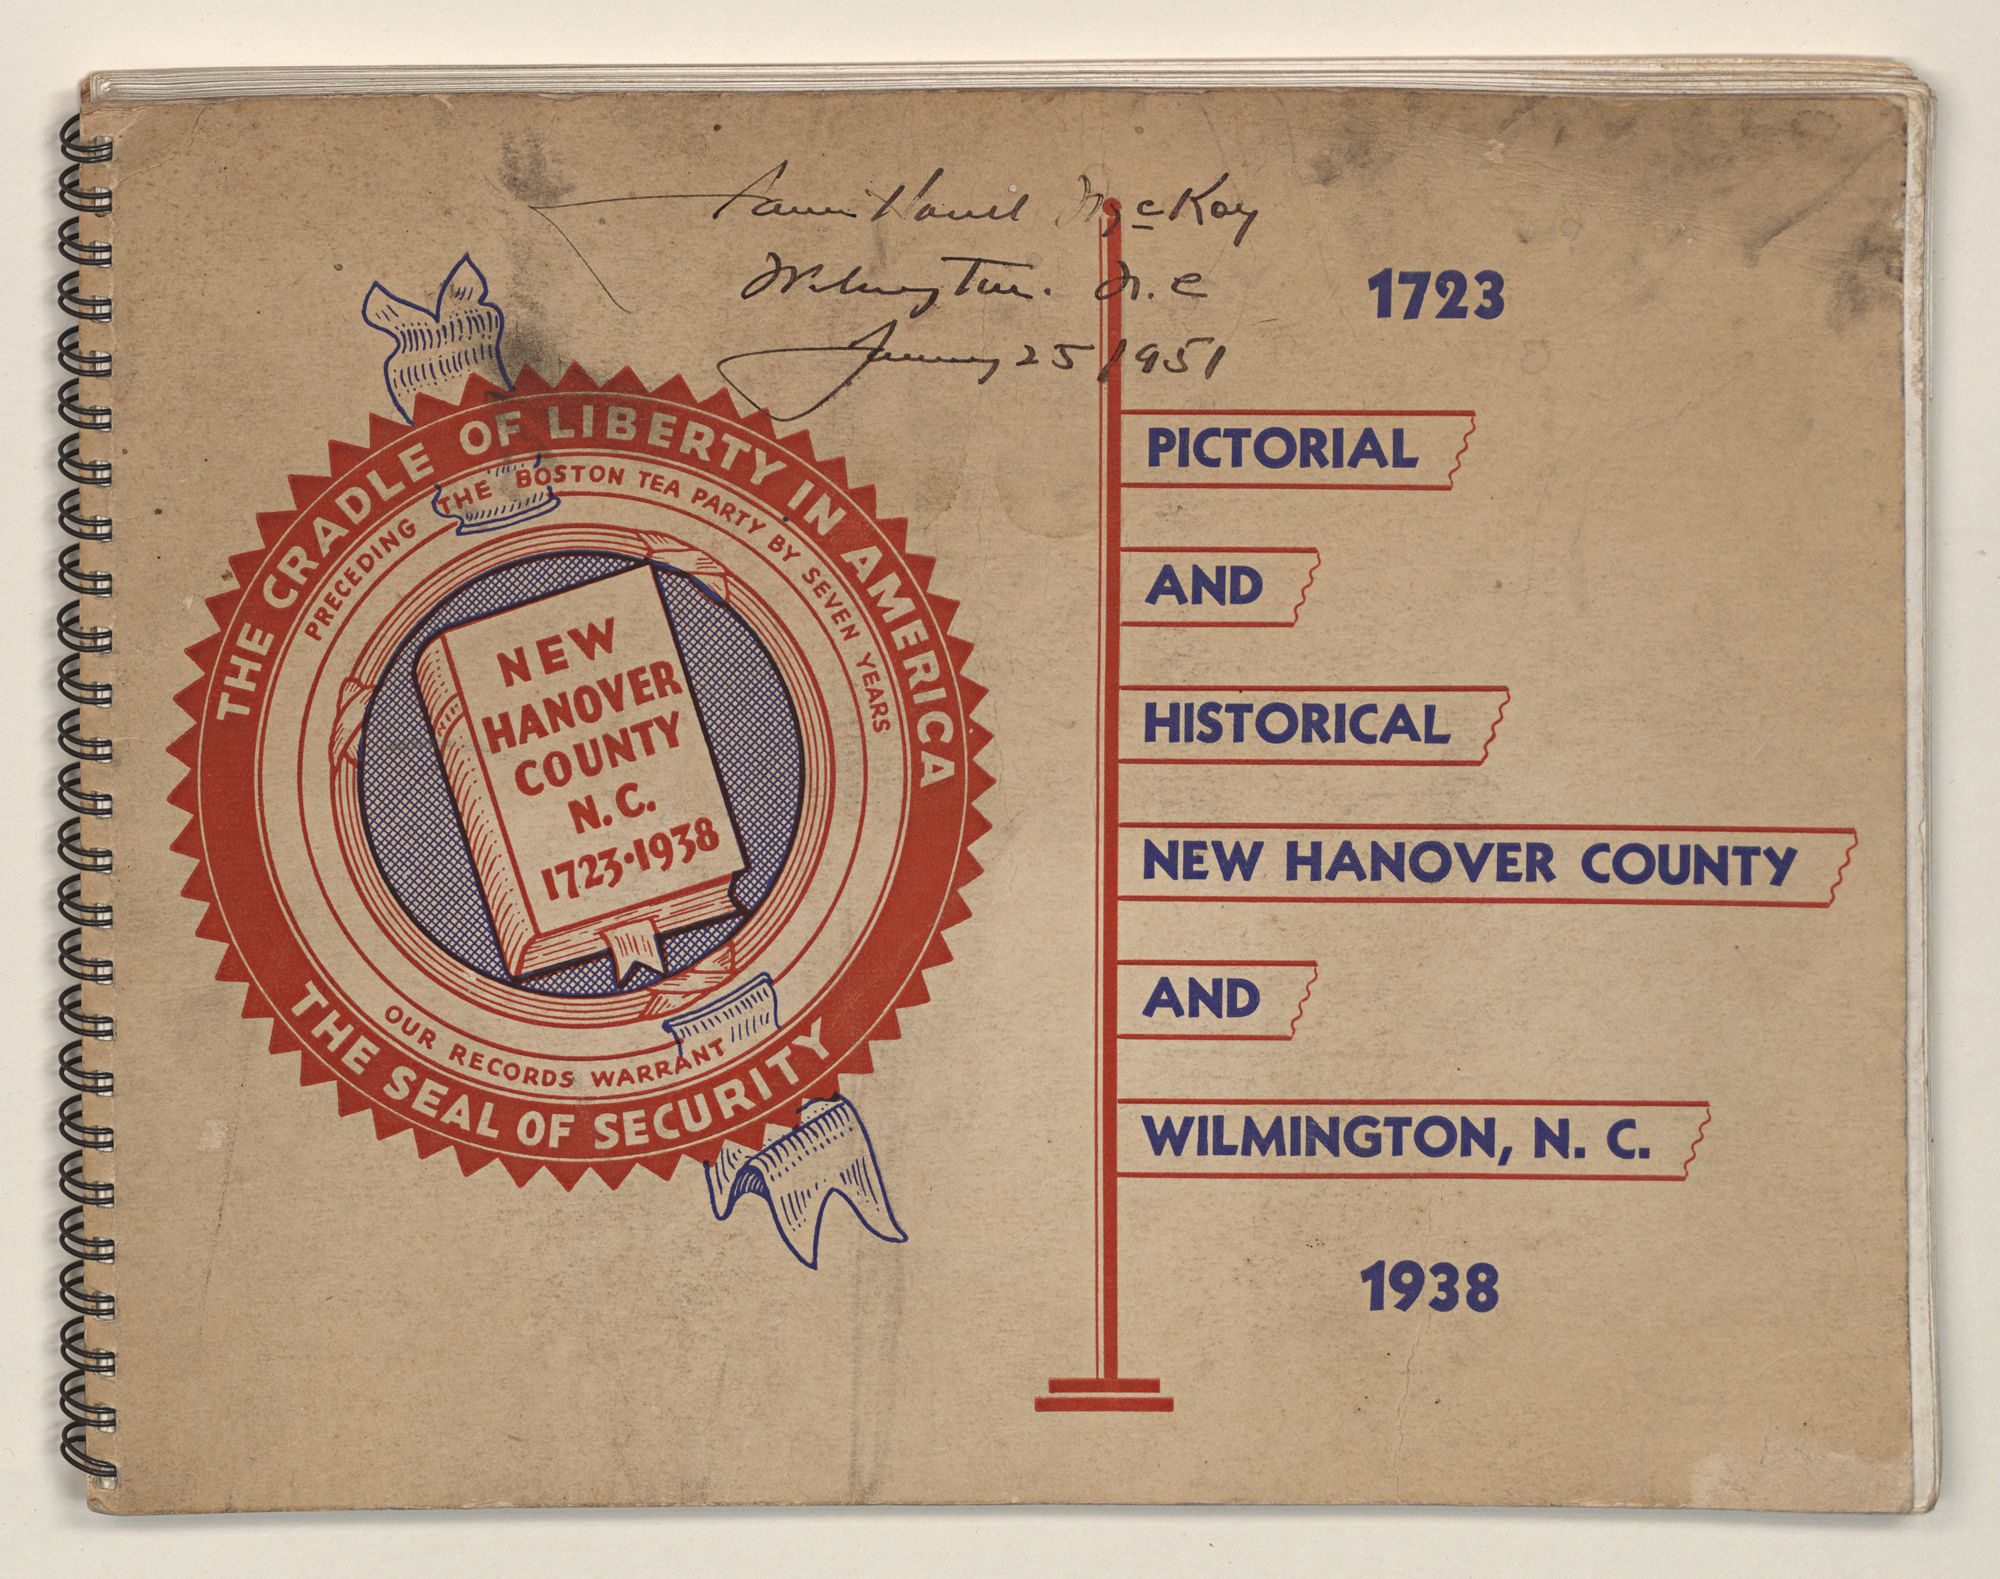 McKay
Wilmington. N.C
January 25 1951
THE CRADLE OF LIBERTY IN AMERICA
PRECEDING THE BOSTON TEA PARTY BY SEVEN YEARS
NEW
HANOVER
COUNTY
N. C.
1723·1938
OUR RECORDS WARRANT
THE SEAL OF SECURITY
1723
PICTORIAL
AND
HISTORICAL
NEW HANOVER COUNTY
AND
WILMINGTON, N. C.
1938